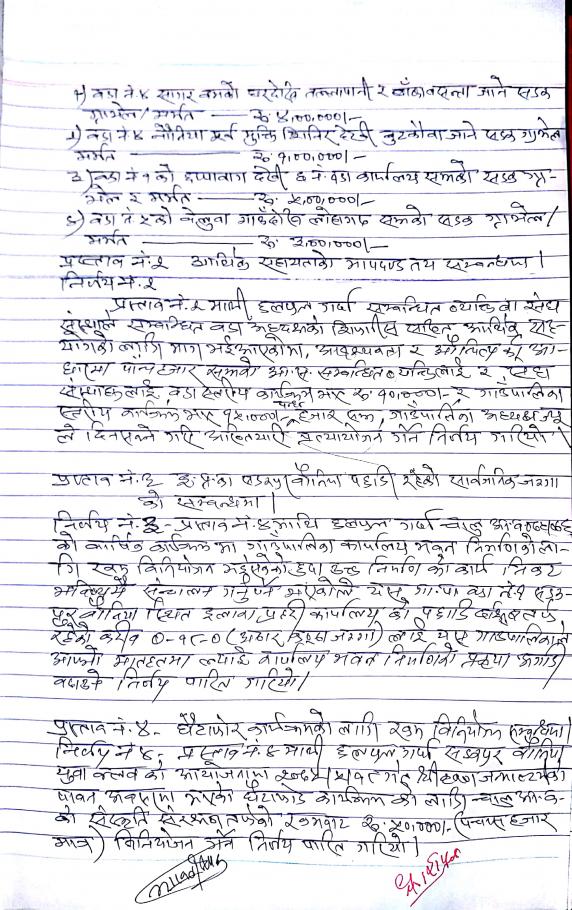 १) वडा नं. ४ सागर बमको घरदेखि तल्लापानी र जाने सडक
ग्राभेल/मर्मत — रु. ४,००,०००/-
२) वडा नं. ४ देखी जाने सडक ग्राभेल
मर्मत — रु. १,००,०००/-
वडा नं. १ को देखी ६ नं. वडा कार्यालय सम्मको सडक ग्रा-
भेल र मर्मत — रु. ५,००,०००/-
वडा नं. ५ को बेलुवा गाउँदेखि सम्मको सडक ग्राभेल/
मर्मत — रु. ३,००,०००/-
प्रस्ताव नं. २ आर्थिक सहायताको मापदण्ड तय सम्बन्धमा।
निर्णय नं. २
प्रस्ताव नं. २ माथी छलफल गर्दा सम्बन्धित व्यक्ति वा संघ
संस्थाले सम्बन्धित वडा अध्यक्षको सिफारिस सहित आर्थिक सह-
योगको लागि माग भई आएकोमा, आवश्यकता र औचित्य को आ-
धारमा पाँच हजार सम्मको आ.स. सम्बन्धित व्यक्तिलाई र संघ
संस्थाहरुलाई, वडा स्तरीय कार्यक्रम भए रु. १०,०००/- र गाउँपालिका
स्तरीय कार्यक्रम भए १५,०००/- हजार सम्म, गाउँपालिका अध्यक्ष ज्यू
ले दिन सक्ने गरि अख्तियारी प्रत्यायोजन गर्ने निर्णय गरियो।
प्रस्ताव नं. ३ पहाडी रहेको सार्वजनिक जग्गा
को सम्बन्धमा।
निर्णय नं. ३- प्रस्ताव नं. ३ माथि छलफल गर्दा चालु आ.व.
को वार्षिक कार्यक्रम मा गाउँपालिका कार्यालय भवन निर्माणको ला-
गि रकम विनियोजन भई सकेको हुदा उक्त निर्माण को कार्य निकट
भविष्यमै संचालन गर्नुपर्ने भएकोले यस गा.पा. वडा नं. ५
स्थित इलाका प्रहरी कार्यालय को पछाडि तर्फ
रहेको करिब ०-१८-० (अठार कठ्ठा जग्गा) लाई यस गाउँपालिकाले
आफ्नो मातहतमा ल्याई कार्यालय भवन निर्माणको प्रकृया अगाडी
बढाउने निर्णय पारित गरियो।
प्रस्ताव नं. ४- घैंटाफोर कार्यक्रमको लागि रकम विनियोजन सम्बन्धमा।
निर्णय नं. ४- प्रस्ताव नं. ४ माथी छलफल गर्दा
युवा क्लव को आयोजनामा श्रीकृष्ण जन्माष्टमीको
पावन अवसरमा भएको घैंटाफोड कार्यक्रम को लागि चालु आ.व.
को संस्कृति संरक्षण तर्फको रकमबाट रु. ५०,०००/- (पचास हजार
मात्र) विनियोजन गर्ने निर्णय पारित गरियो।